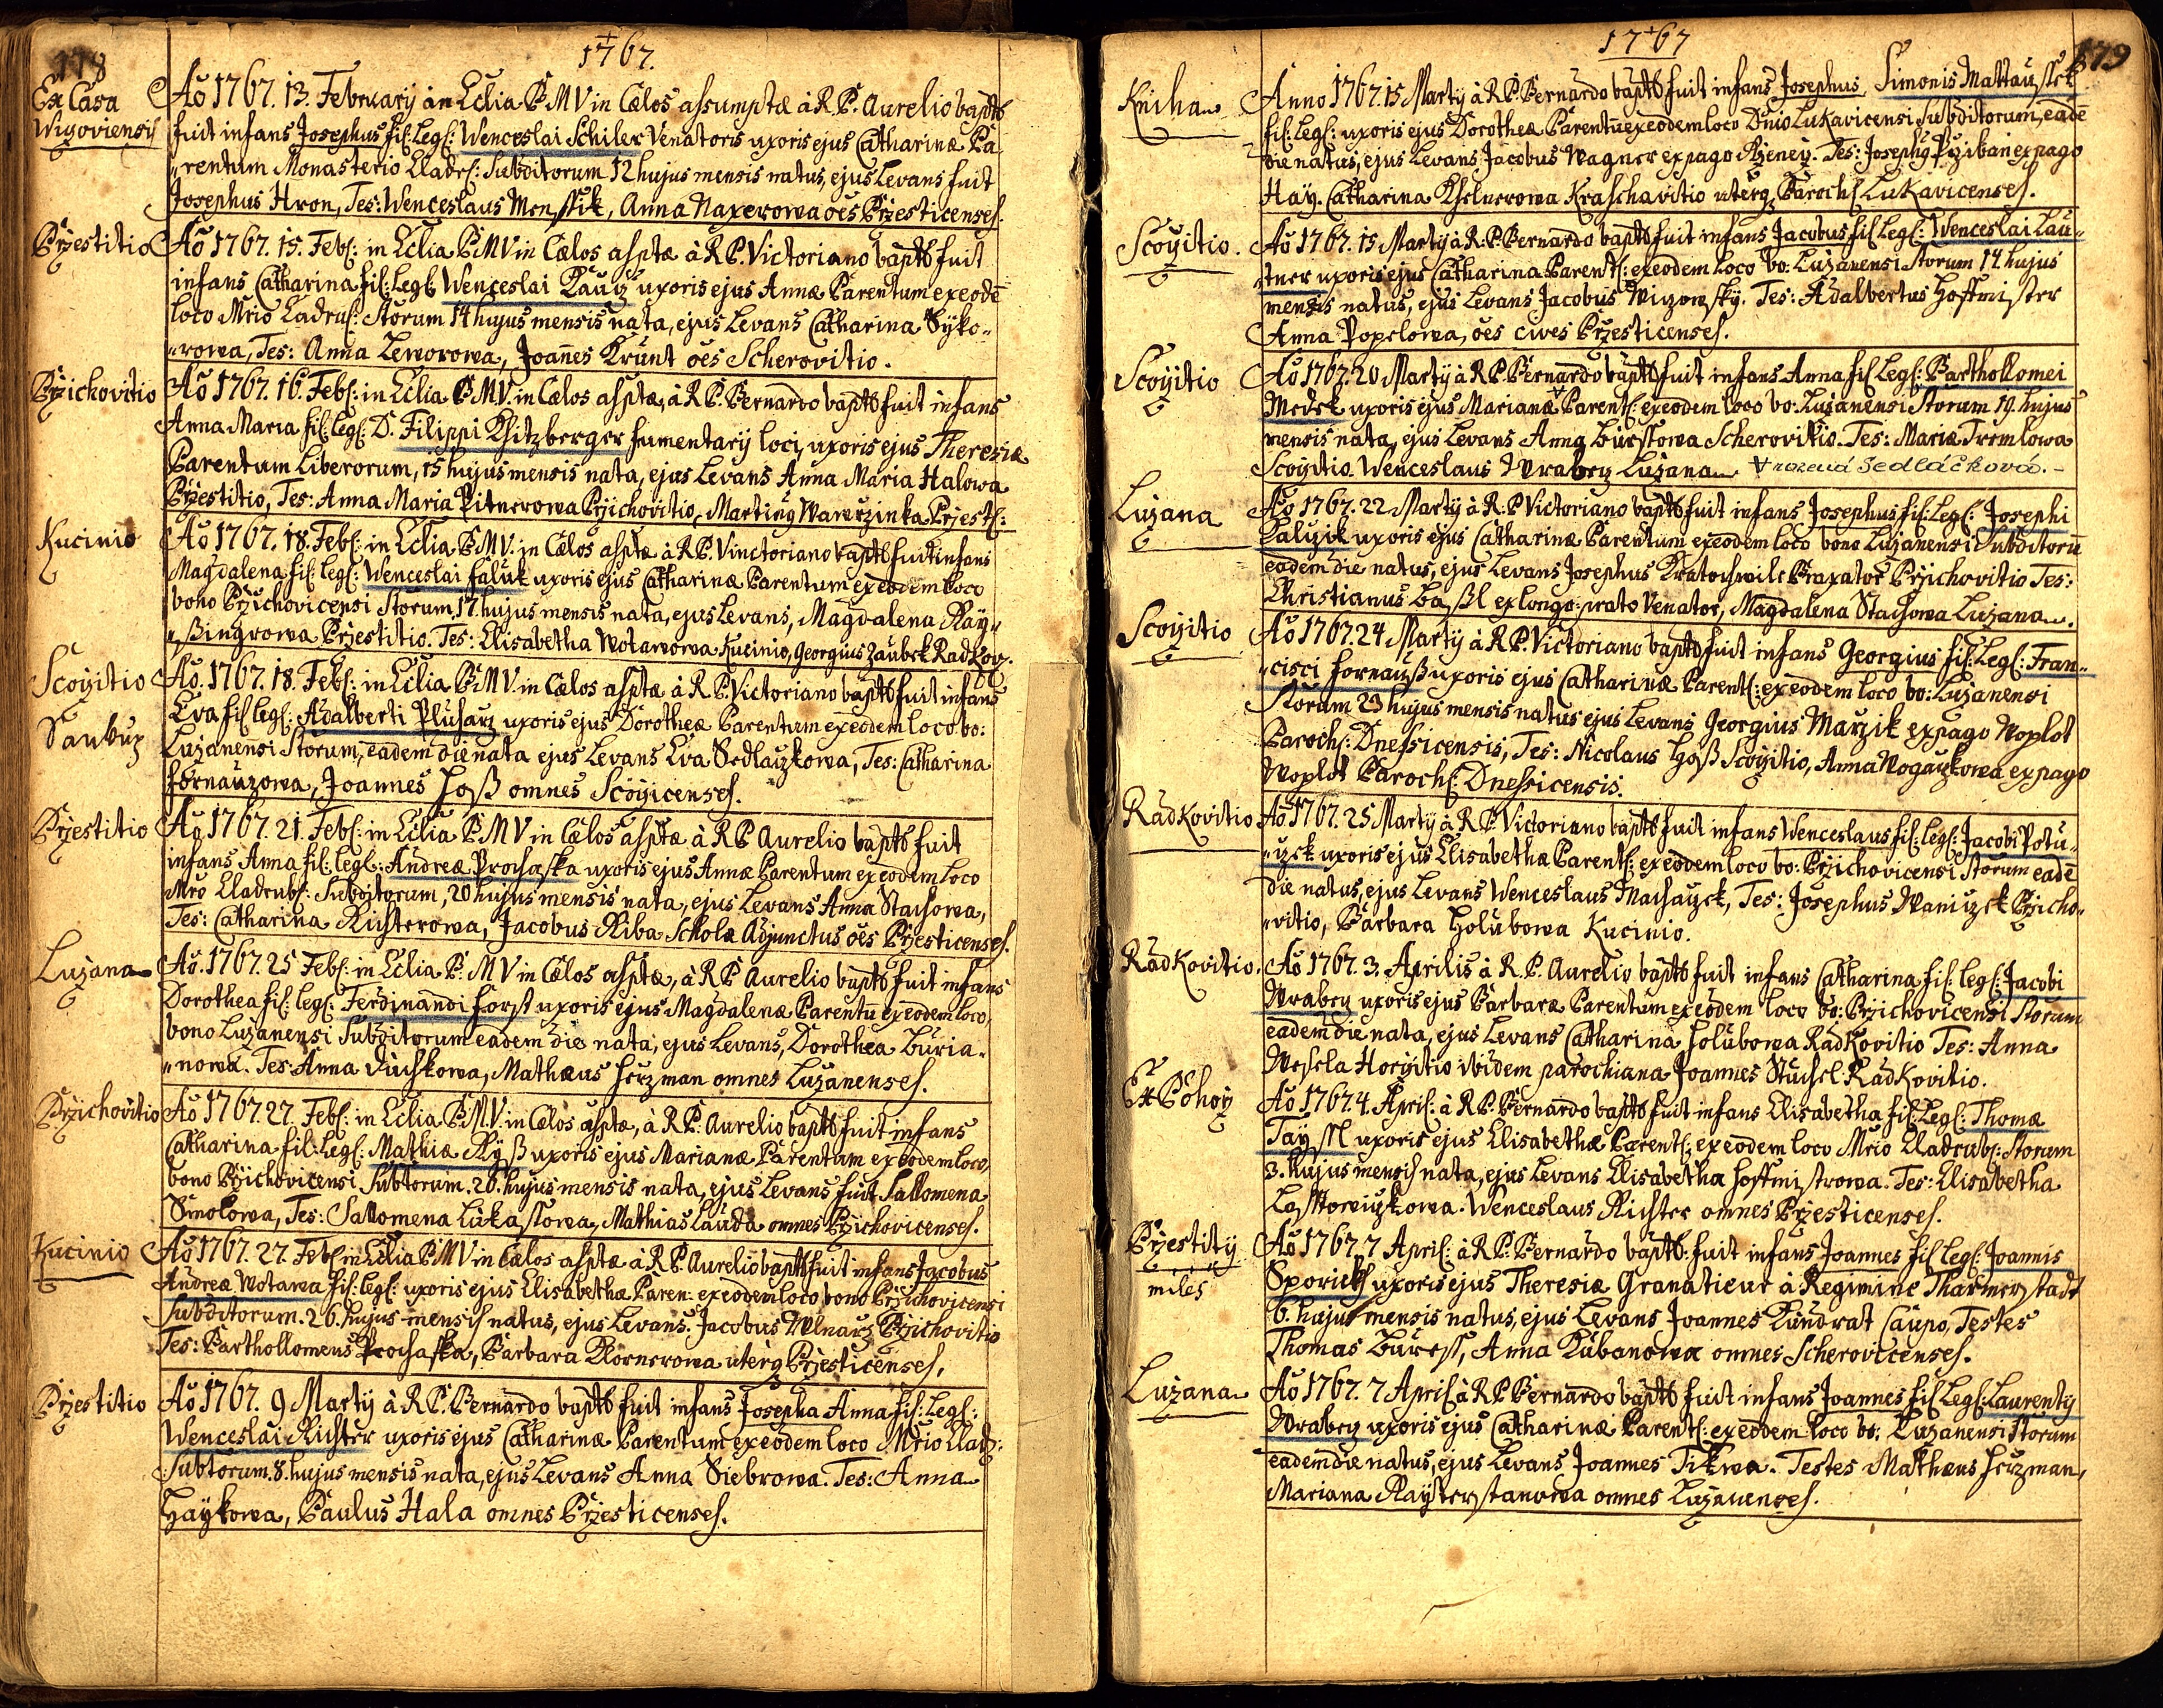 178
1767.
Ex Casa
Wigoviensy
Ao 1767. 13. February in Eclia B M V in Cælos assumptæ à R. P. Aurelio baptb
fuit infans Josephus fil: Legl: Wenceslai Schiler Venatoris uxoris ejus Catharinæ Pa
rentum Monasterio Lladrl: Subditorum 12 hujus mensis natus, ejus Levans fuit
Josephus Hron, Tes: Wenceslaus Menssik, Anna Naxerowa oes Przesticenses.
Przestitio
Ao 1767. 15. Febl: in Eclia B M V in Cælos assptæ à R P. Victoriano baptb fuit
infans Catharina fil: Legl: Wenceslai Kauz uxoris ejus Annæ Parentum exeode
loco Mrio Ladrul: Storum 14 hujus mensis nata, ejus Levans Catharina Syko=
=rowa, Tes: Anna Leworowa, Joannes Krunt oes Scherovitio.
Przichovitio
Ao 1767. 16. Febl: in Eclia B. M. V. in Cælos assptæ, à R P. Bernardo baptb fuit infans
Anna Maria fil: legl: D. Filippi Khitzberger frumentarij loci, uxoris ejus Theresiæ
Parentum Liberorum, 15 hujus mensis nata, ejus Levans Anna Maria Halowa
Przestitio, Tes: Anna Maria Pitnerowa Przichovitio, Martinus Wawrzinka Przestl:
Kucinio
Ao 1767. 18. Febl: in Eclia B. M V. in Cælos assptæ à R P. Vinctoriano baptb fuit infans
Magdalena fil: legl: Wenceslai Faluk uxoris ejus Catharinæ Parentum exeodem loco
bono Przichovicensi Storum, 17. hujus mensis nata, ejus Levans, Magdalena Ray=
=ßingrowa Przestitio. Tes: Elisabetha Wotawowa Kucinio, Georgius Zaubek Radkov.
Scoczitio
Ao. 1767. 18. Febl: in Eclia B M V. in Cælos assptæ à R P. Victoriano baptb fuit infans
Eva fil legl: Adalberti Pluharz uxoris ejus Dorotheæ Parentum exeodem loco bo:
Luzanensi Storum, eadem die nata ejus Levans Eva Sedlaczkowa, Tes: Catharina
Fornauzowa, Joannes Hoß omnes Scoczicenses.
Przestitio
Ao 1767. 21. Febl: in Eclia B M V in Cælos assptæ à R P Aurelio baptb fuit
infans Anna fil: legl: Andreæ Prochaska uxoris ejus Annæ Parentum exeodem loco
Mro Lladrubl: Subditorum, 20 hujus mensis nata, ejus Levans Anna Stachowa,
Tes: Catharina Richterowa, Jacobus Riba Scholæ Adjunctus oes Przesticenses.
Luzana
Ao. 1767. 25 Febl: in Eclia B. M V in Cælos assptæ, à R P Aurelio baptb fuit infans
Dorothea fil: legl: Ferdinandi Forst uxoris ejus Magdalenæ Parentu exeodem loco,
bono Luzanensi Subditorum eadem die nata, ejus Levans, Dorothea Buria=
=nowa. Tes: Anna Duchkowa, Mathæus Herzman omnes Luzanenses.
Przichovitio
Ao 1767. 27. Febl: in Eclia B. M. V. in Cælos assptæ, à R P. Aurelio baptb fuit infans
Catharina fil: legl: Mathiæ Ryß uxoris ejus Marianæ Parentum exeodem loco,
bono Przichovicensi Subtorum. 26. hujus mensis nata, ejus Levans fuit Sallomena
Smolowa, Tes: Sallomena Lukassowa, Mathias Lauda omnes Przichovicenses.
Kucinio
Ao 1767. 27. Febl in Eclia B M V in Cælos assptæ à R P. Aurelio baptb fuit infans Jacobus
Andreæ Wotawa fil: legl: uxoris ejus Elisabethæ Paren: exeodem loco bono Przichovicensi
Subditorum. 26. hujus mensis natus, ejus Levans. Jacobus Mlnarz Przichovitio
Tes: Barthollomeus Prochaska, Barbara Kornerowa uterq Przesticenses,
Przestitio
Ao 1767. 9 Marty à R P. Bernardo baptb fuit infans Josepha Anna fil: Legl:
Wenceslai Richter uxoris ejus Catharinæ Parentum exeodem loco Mrio Llad:
Subtorum. 8. hujus mensis nata, ejus Levans Anna Siebrowa. Tes: Anna
Haykowa, Paulus Hala omnes Przesticenses.
1767
179
Kniha
Anno 1767. 15 Marty à R. P. Bernardo baptb fuit infans Josephus Simonis Mattaussek
fil: Legl: uxoris ejus Dorotheæ Parentu exeodem loco Dnio Lukavicensi Subditorum, eade
die natus, ejus Levans Jacobus Wagner ex pago Rzeney. Tes: Josephus Prziban ex pago
Hay. Catharina Khelnerowa Kraschavitio uterq Parochl Lukavicenses.
Scoczitio.
Ao 1767. 15 Marty à R. P. Bernardo baptb fuit infans Jacobus fil Legl: Wenceslai Lau=
=tner uxoris ejus Catharina Parentl: exeodem loco bo: Luzanensi Storum 14 hujus
mensis natus, ejus Levans Jacobus Wiczowsky. Tes: Adalbertus Hoffmister
Anna Popelowa, oes cives Przesticenses.
Scoczitio
Ao 1767. 20 Marty à R P. Bernardo baptb fuit infans Anna fil Legl: Barthollomei
Medek uxoris ejus Marianæ Parentl: exeodem loco bo: Luzanensi Storum 19. hujus
mensis nata, ejus Levans Anna Burssowa Scherovitio. Tes: Maria Tremlowa
Scoczitio. Wenceslaus Wrabey Luzana rozená Sedláčková. -
Luzana
Ao 1767. 22 Marty à R. P Victoriano baptb fuit infans Josephus fil: Legl: Josephi
Kaliczik uxoris ejus Catharinæ Parentum exeodem loco bono Luzanensi Subditoru
eadem die natus, ejus Levans Josephus Kratochwile Braxator Przichovitio Tes:
Christianus Baßl ex longo-prato Venator, Magdalena Stachowa Luzana.
Scoczitio
Ao 1767. 24 Marty à R P. Victoriano baptb fuit infans Georgius fil: Legl: Fran=
=cisci Fornauß uxoris ejus Catharinæ Parentl: exeodem loco bo: Luzanensi
Storum 23 hujus mensis natus ejus Levans Georgius Marzik ex pago Woplot
Parochl: Dnessicensis, Tes: Nicolaus Hoß Scoczitio, Anna Wogaczkowa ex pago
Woplot Parochl: Dnessicensis.
Radkovitio
Ao 1767. 25 Marty à R P Victoriano baptb fuit infans Wenceslaus fil: legl: Jacobi Potu=
=czek uxoris ejus Elisabethæ Parentl: exeodem loco bo: Przichovicensi Storum eade
die natus, ejus Levans Wenceslaus Machaczek, Tes: Josephus Waniczek Przicho=
=vitio, Barbara Holubowa Kucinio.
Radkovitio.
Ao 1767. 3. Aprilis à R. P. Aurelio baptb fuit infans Catharina fil: legl: Jacobi
Wrabey uxoris ejus Barbaræ Parentum exeodem loco bo: Przichovicensi Storum
eadem die nata, ejus Levans Catharina Holubowa Radkovitio Tes: Anna
Wesela Horczitio ibidem parochiana Joannes Stuchl: Radkovitio.
Ex Pohor
Ao 1767. 4. April: à R P. Bernardo baptb fuit infans Elisabetha fil: Legl: Thomæ
Tayssl uxoris ejus Elisabethæ Parentl: exeodem loco Mrio Lladrubl: Storum
3. hujus mensis nata, ejus Levans Elisabetha Hoffmistrowa. Tes: Elisabetha
Lasstowiczkowa. Wenceslaus Richter omnes Przesticenses.
Przestity
miles
Ao 1767. 7 April: à R P. Bernardo baptb: fuit infans Joannes fil Legl: Joannis
Sporich uxoris ejus Theresiæ Granatieur à Regimine Tharmerstadt
6. hujus mensis natus, ejus Levans Joannes Kundrat Caupo, Testes
Thomas Buress, Anna Kubanowa omnes Scherovicenses.
Luzana
Ao 1767. 7 April à R P Bernardo baptb fuit infans Joannes fil Legl: Laurenty
Wrabey uxoris ejus Catharinæ Parentl: exeodem loco bo: Luzanensi Storum
eadem die natus, ejus Levans Joannes Tikwa. Testes Mathæus Herzman,
Mariana Rayterstanowa omnes Luzanenses.